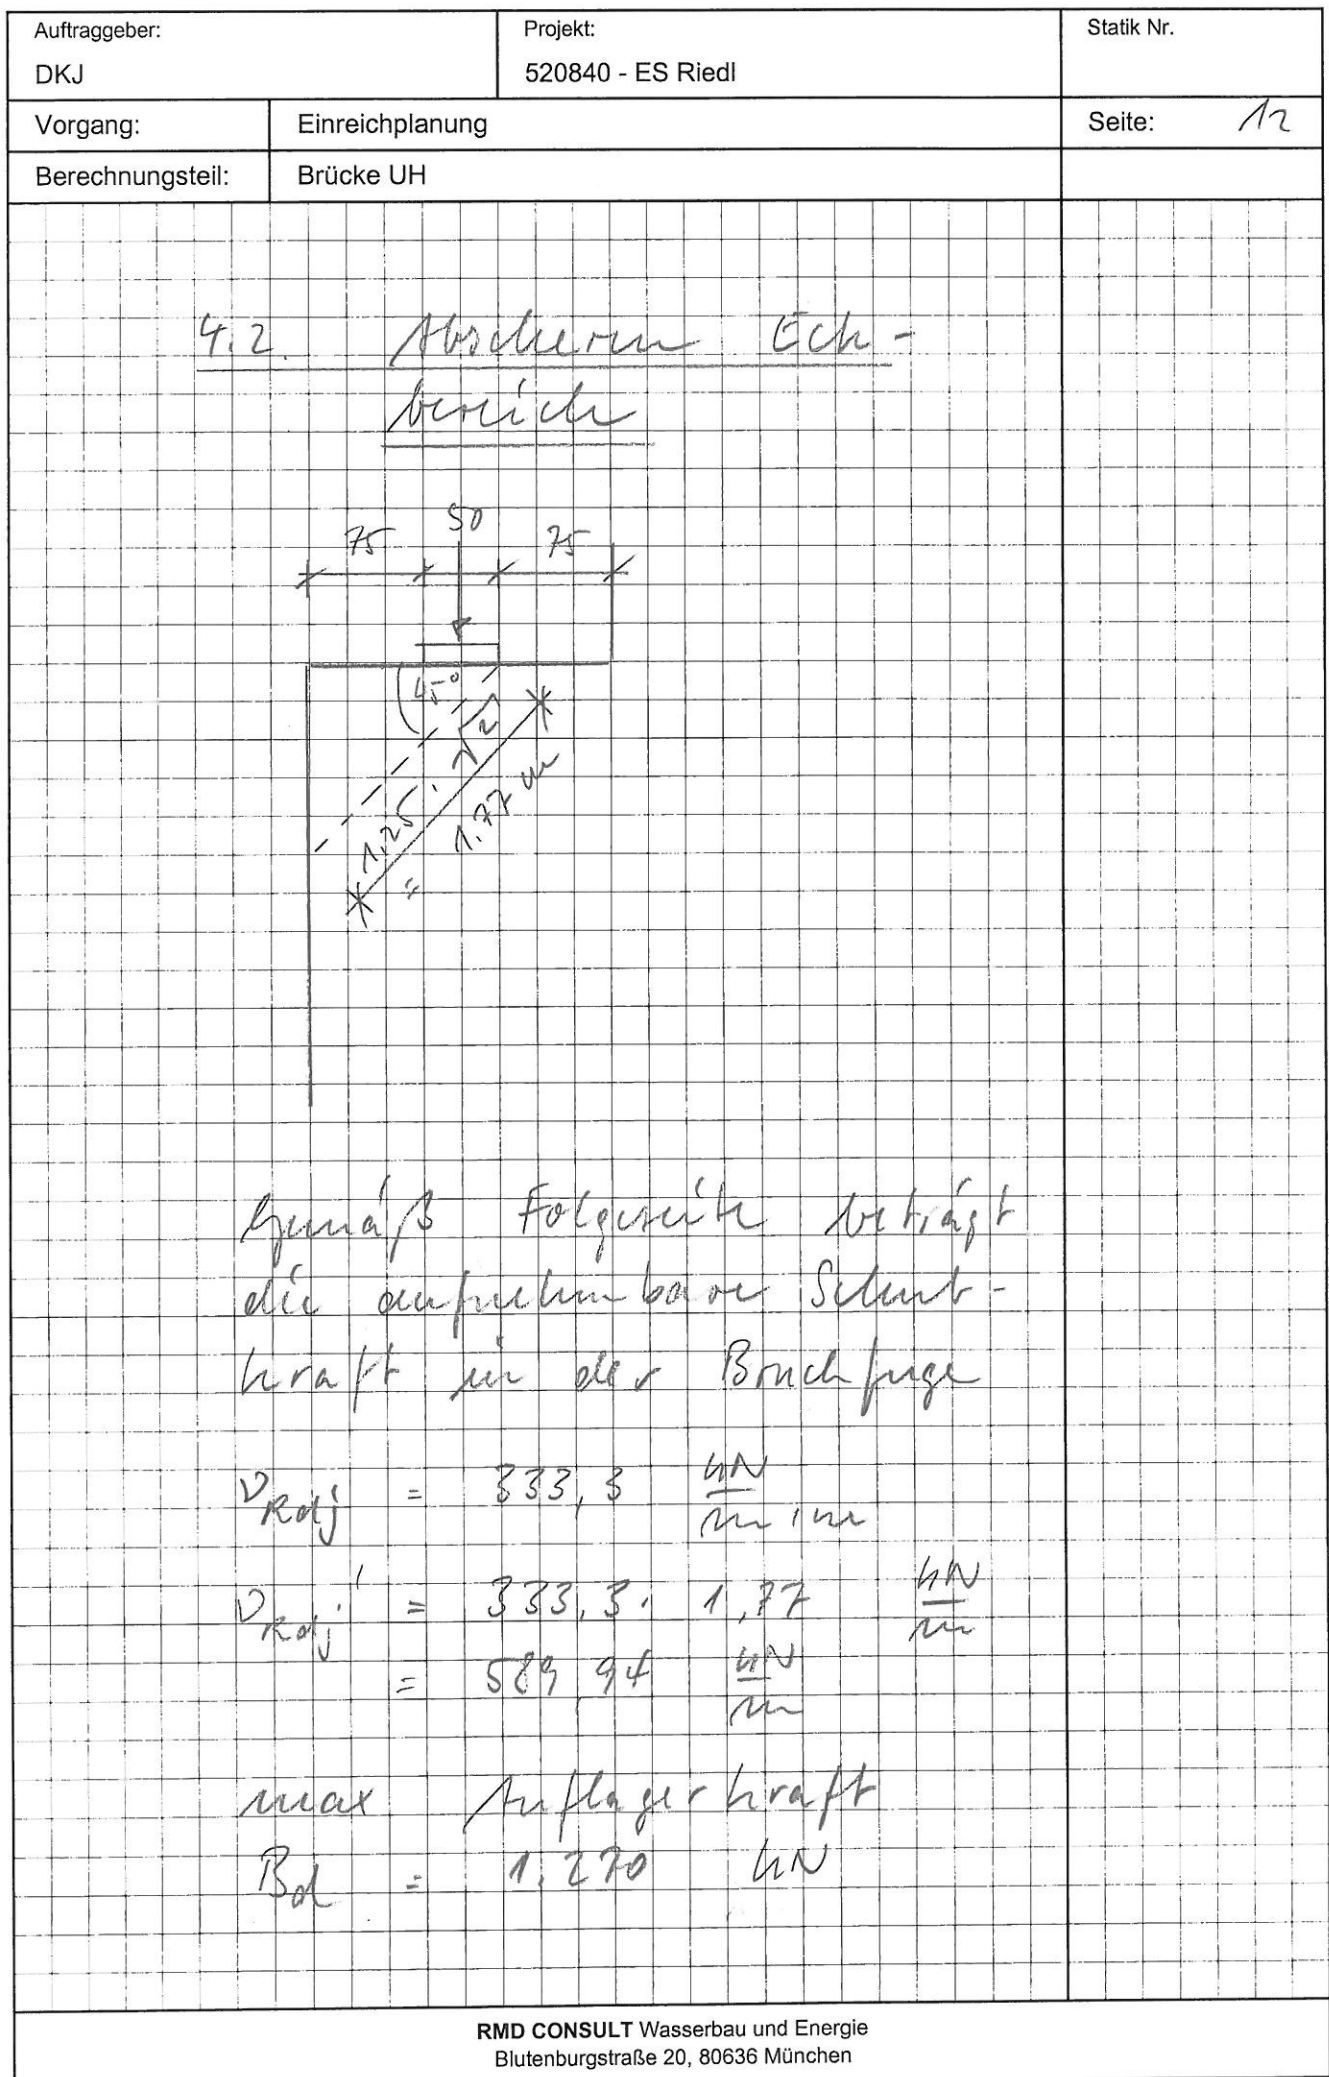 Auftraggeber:
DKJ
Projekt:
520840 - ES Riedl
Statik Nr.
Vorgang:
Einreichplanung
Seite: 12
Berechnungsteil:
Brücke UH
4.2. Abscheren Eck-
bereich
75 50 75
45°
1,25 · √2
= 1.77 m
Gemäß Folgeseite beträgt
die aufnehmbare Schub-
kraft in der Bruchfuge
νRdj = 333,3 kN/m·m
νRdj' = 333,3 · 1,77 kN/m
= 589,94 kN/m
max Auflagerkraft
Bd = 1.270 kN
RMD CONSULT Wasserbau und Energie
Blutenburgstraße 20, 80636 München